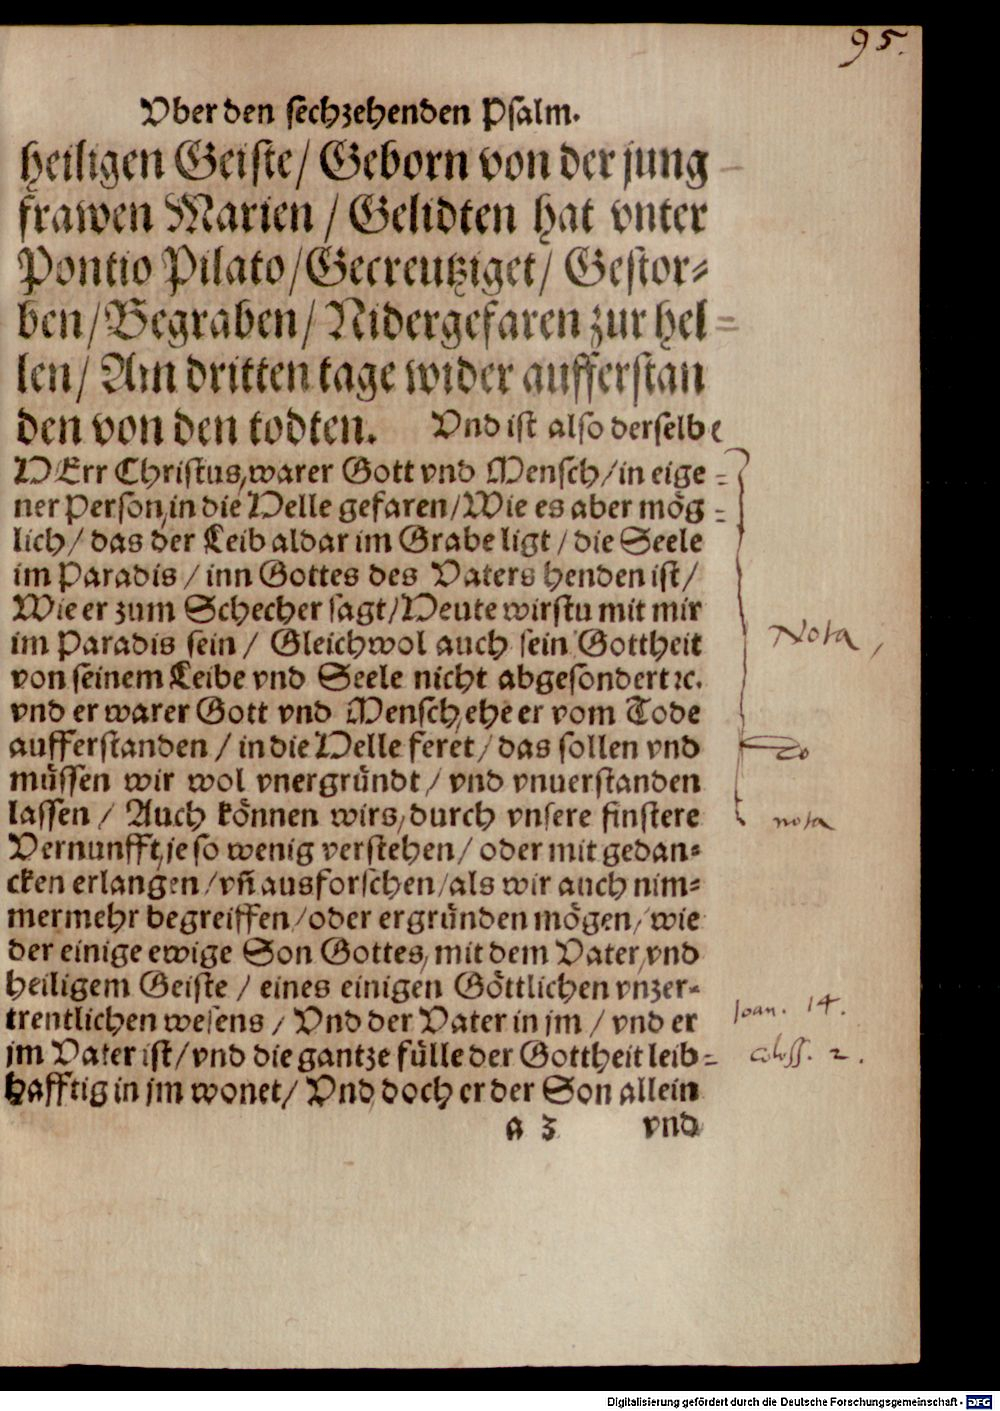 95.
Vber den sechzehenden Psalm.
heiligen Geiste/ Geborn von der jung
frawen Marien / Gelidten hat vnter
Pontio Pilato/Gecreutziget/ Gestor-
ben/Begraben/ Nidergefaren zur hel
len/ Am dritten tage wider aufferstan
den von den todten. Vnd ist also derselbe
HErr Christus, warer Gott vnd Mensch/in eige
ner Person, in die Helle gefaren/Wie es aber mög
lich/ das der Leib aldar im Grabe ligt / die Seele
im Paradis / inn Gottes des Vaters henden ist/
Wie er zum Schecher sagt/Heute wirstu mit mir
im Paradis sein / Gleichwol auch sein Gottheit
von seinem Leibe vnd Seele nicht abgesondert ⁊c.
vnd er warer Gott vnd Mensch, ehe er vom Tode
aufferstanden / in die Helle feret/ das sollen vnd
müssen wir wol vnergründt / vnd vnuerstanden
lassen / Auch können wirs, durch vnsere finstere
Vernunfft, je so wenig verstehen/ oder mit gedan-
cken erlangen/ vn̄ ausforschen/als wir auch nim-
mermehr begreiffen/oder ergründen mögen/ wie
der einige ewige Son Gottes, mit dem Vater, vnd
heiligem Geiste / eines einigen Göttlichen vnzer-
trentlichen wesens / Vnd der Vater in jm / vnd er
jm Vater ist/ vnd die gantze fülle der Gottheit leib-
hafftig in jm wonet/ Vnd doch er der Son allein
a 3 vnd
Nota
nota
Joan. 14.
Coloss. 2.
Digitalisierung gefördert durch die Deutsche Forschungsgemeinschaft - DFG